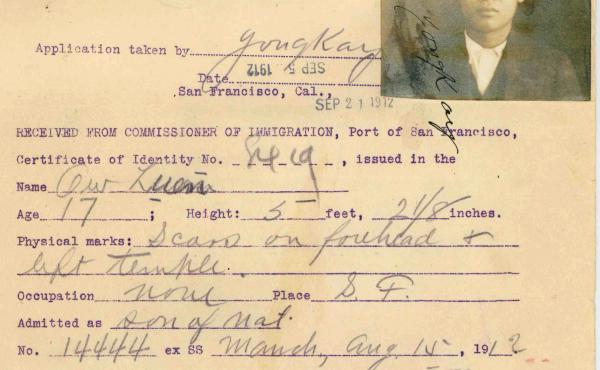 Application taken by Yong Kay
Date SEP 5 1912
San Francisco, Cal.,
SEP 21 1912
Yong Kay
RECEIVED FROM COMMISSIONER OF IMMIGRATION, Port of San Francisco,
Certificate of Identity No. , issued in the
Name Ow Luem
Age 17 ; Height: 5 feet, 2 1/8 inches.
Physical marks: Scars on forehead &
left temple.
Occupation none Place S. F.
Admitted as son of nat.
No. 14444 ex SS Manch, Aug 15, 1912